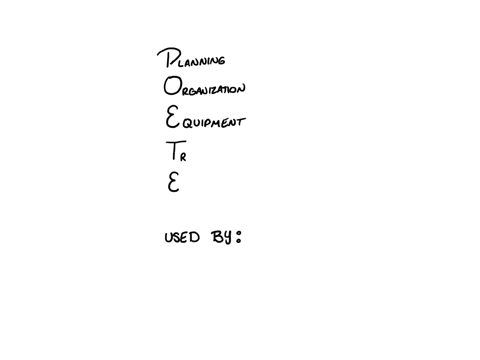 Planning
Organization
Equipment
Tr
E
USED BY: